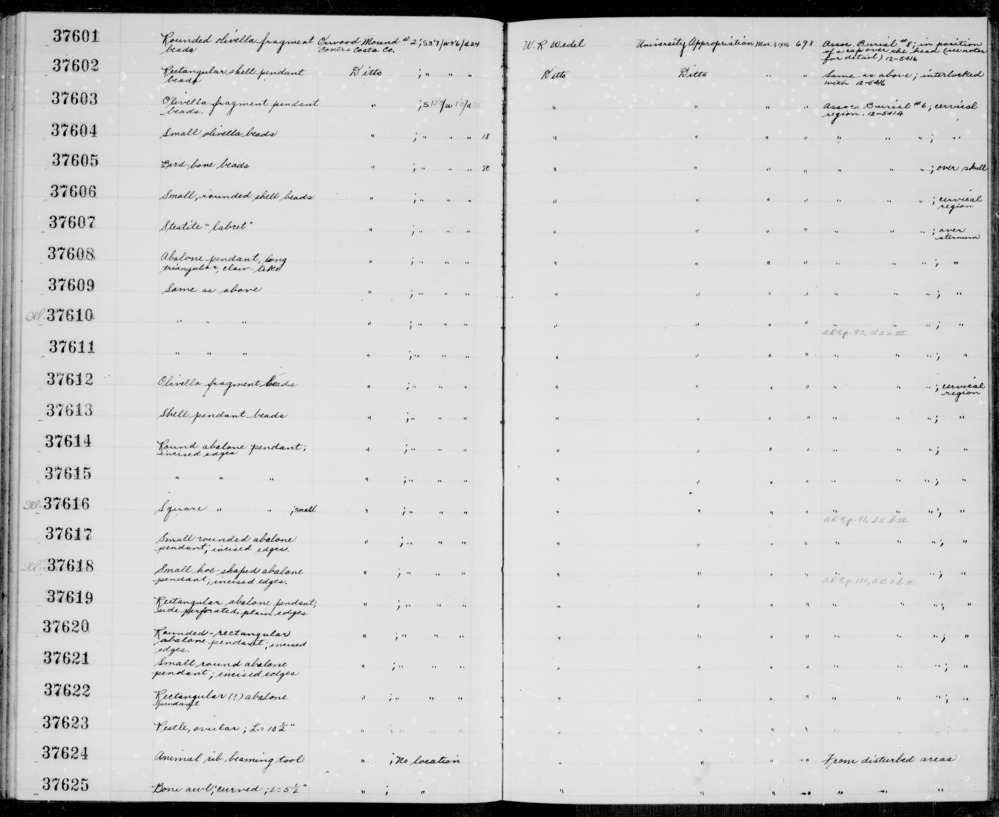 37601 Rounded olivella fragment beads Orwood Mound #2; S37/W56/d24 Contra Costa Co. W. R. Wedel University Appropriation Mar. 698 Assoc. Burial #8; in position of a cap over the head (see notes for detail) 12-5416
37602 Rectangular shell pendant beads Ditto ; " " " Ditto Ditto " " " Same as above; interlocked with 12-5416
37603 Olivella fragment pendant beads. " ; " " " " " Assoc. Burial #6, cervical region. 12-5414
37604 Small olivella beads " ; " " " 18 " " " " " " " ; " "
37605 Bird-bone beads " ; " " " " " " " " " " ; over skull
37606 Small, rounded shell beads " ; " " " " " " " " " " ; cervical region
37607 Steatite "labret" " ; " " " " " " " " " " ; over sternum
37608 Abalone pendant, long triangular, claw-like " ; " " " " " " " " " " ; "
37609 Same as above " ; " " " " " " " " " " ; "
Ill. 37610 " " " " ; " " " " " " " " " " ; "
37611 " " " " ; " " " " " " " " " " ; "
37612 Olivella fragment beads " ; " " " " " " " " " " ; cervical region
37613 Shell pendant beads " ; " " " " " " " " " " ; " "
37614 Round abalone pendant; incised edges " ; " " " " " " " " " " ; " "
37615 " " " " ; " " " " " " " " " " ; " "
Ill. 37616 Square " " ; small " ; " " " " " " " " " " ; "
37617 Small rounded abalone pendant; incised edges. " ; " " " " " " " " " " ; "
Ill. 37618 Small hoe-shaped abalone pendant; incised edges. " ; " " " " " " " " " " ; "
37619 Rectangular abalone pendant; side perforated, plain edges " ; " " " " " " " " " " ; "
37620 Rounded-rectangular abalone pendant; incised edges. " ; " " " " " " " " " " ; "
37621 Small round abalone pendant; incised edges " ; " " " " " " " " " " ; "
37622 Rectangular (?) abalone pendant " ; " " " " " " " " " " ; "
37623 Pestle, ovular; L= 10½" " ; " " " " " " "
37624 Animal rib beaming tool " ; No location " " " " From disturbed areas
37625 Bone awl; curved; L= 5½" " ; " " " " " " " " "